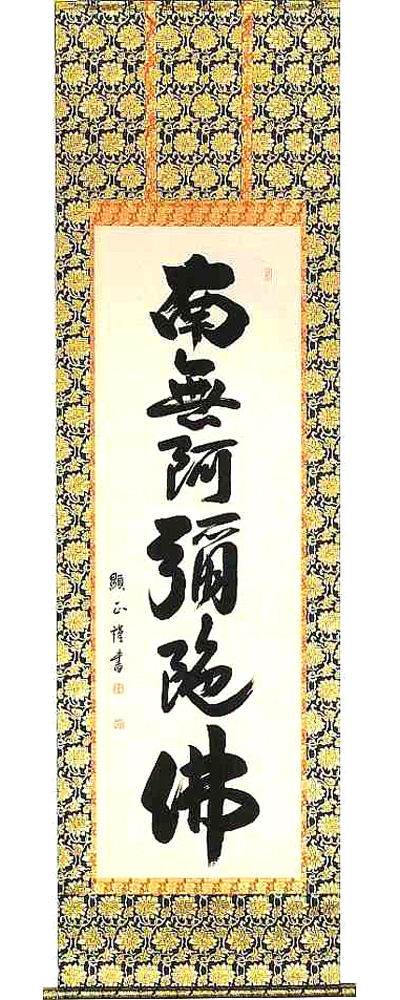 南無阿彌陀佛
顯正謹書